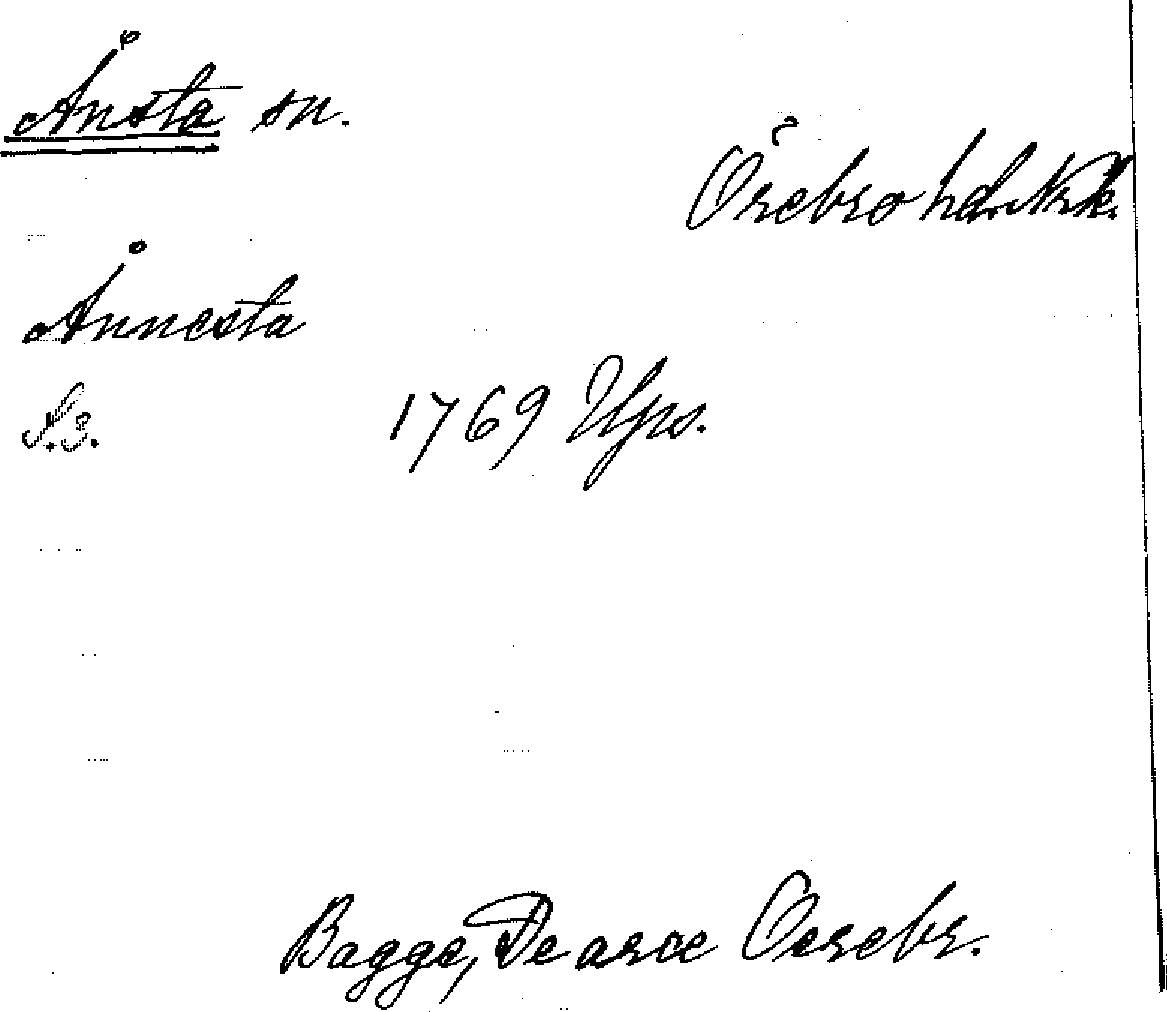 Ånsta sn.
Örebro hd. Nrk.
Ånnesta
S. 3. 1769 Ups.
Bagge, De arce Oerebr.